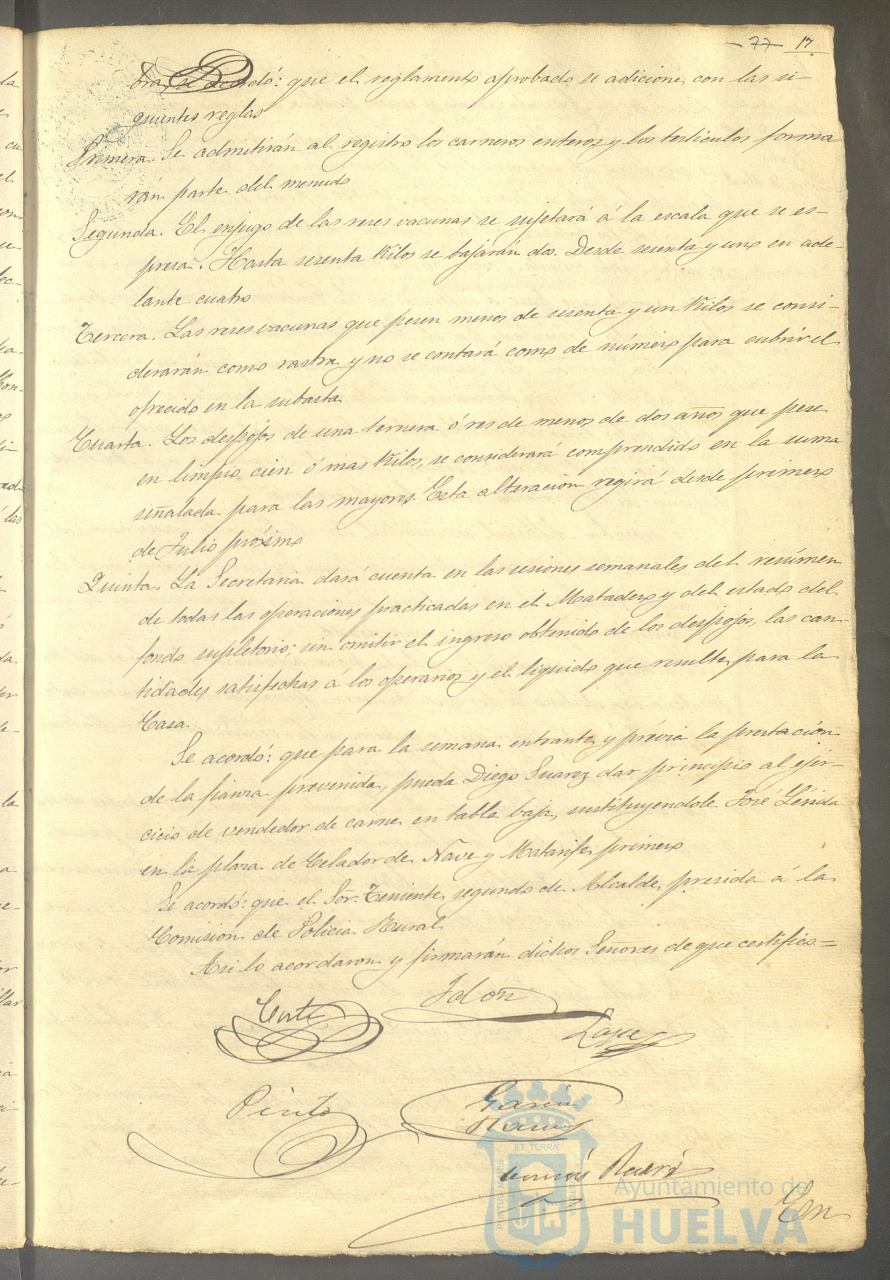 77 17
se acordó: que el reglamento aprobado se adicione con las si-
guientes reglas
Primera. Se admitirán al registro los carneros enteros y los testiculos forma
rán parte del menudo
Segunda. El enjugo de las reses vacunas se sujetará á la escala que se es-
presa. Hasta sesenta Kilos se bajarán dos. Desde sesenta y uno en ade-
lante cuatro
Tercera. Las reses vacunas que pesen menos de sesenta y un Kilos se consi-
derarán como rastra y no se contará como de número para cubrir el
ofrecido en la subasta
Cuarta. Los despojos de una ternera ó res de menos de dos años que pese
en limpio cien ó mas Kilos, se considerará comprendido en la suma
señalada para las mayores. Esta alteración regirá desde primero
de Julio próximo
Quinta. La Secretaria dará cuenta en las sesiones semanales del resúmen
de todas las operaciones practicadas en el Matadero y del estado del
fondo supletorio; sin omitir el ingreso obtenido de los despojos, las can-
tidades satisfechas á los operarios y el liquido que resulte para la
Casa.
Se acordó: que para la semana entrante y prévia la prestación
de la fianza prevenida, pueda Diego Suarez dar principio al ejer-
cicio de vendedor de carne en tabla baja, sustituyendole José Lérida
en la plaza de Celador de Nave y Matarife primero
Se acordó: que el Sor. Teniente segundo de Alcalde, presida á la
Comisión de Policia Rural
Asi lo acordaron y firmarán dichos Señores de que certifico=
Pinto
García
Ayuntamiento de
HUELVA
En